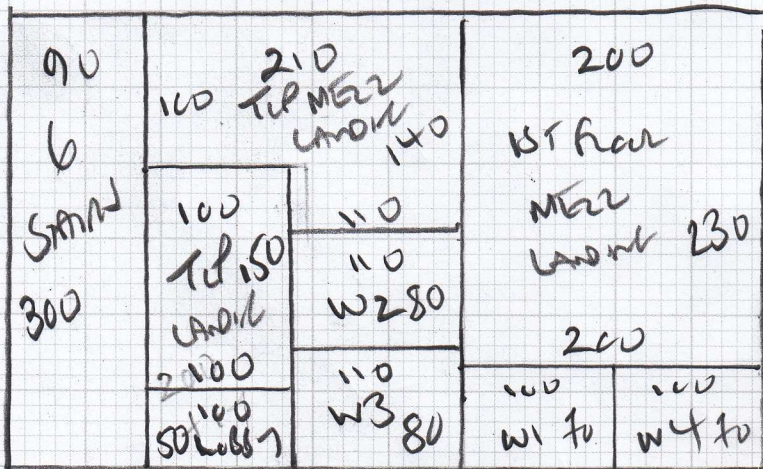 90
6
STAIRS
300
210
100 TOP MEZZ
LANDING
140
110
100
TOP 150
LANDING
100
100
50 LOBBY
110
W2 80
110
W3 80
200
1ST FLOOR
MEZZ
LANDING 230
200
100
W1 70
100
W4 70